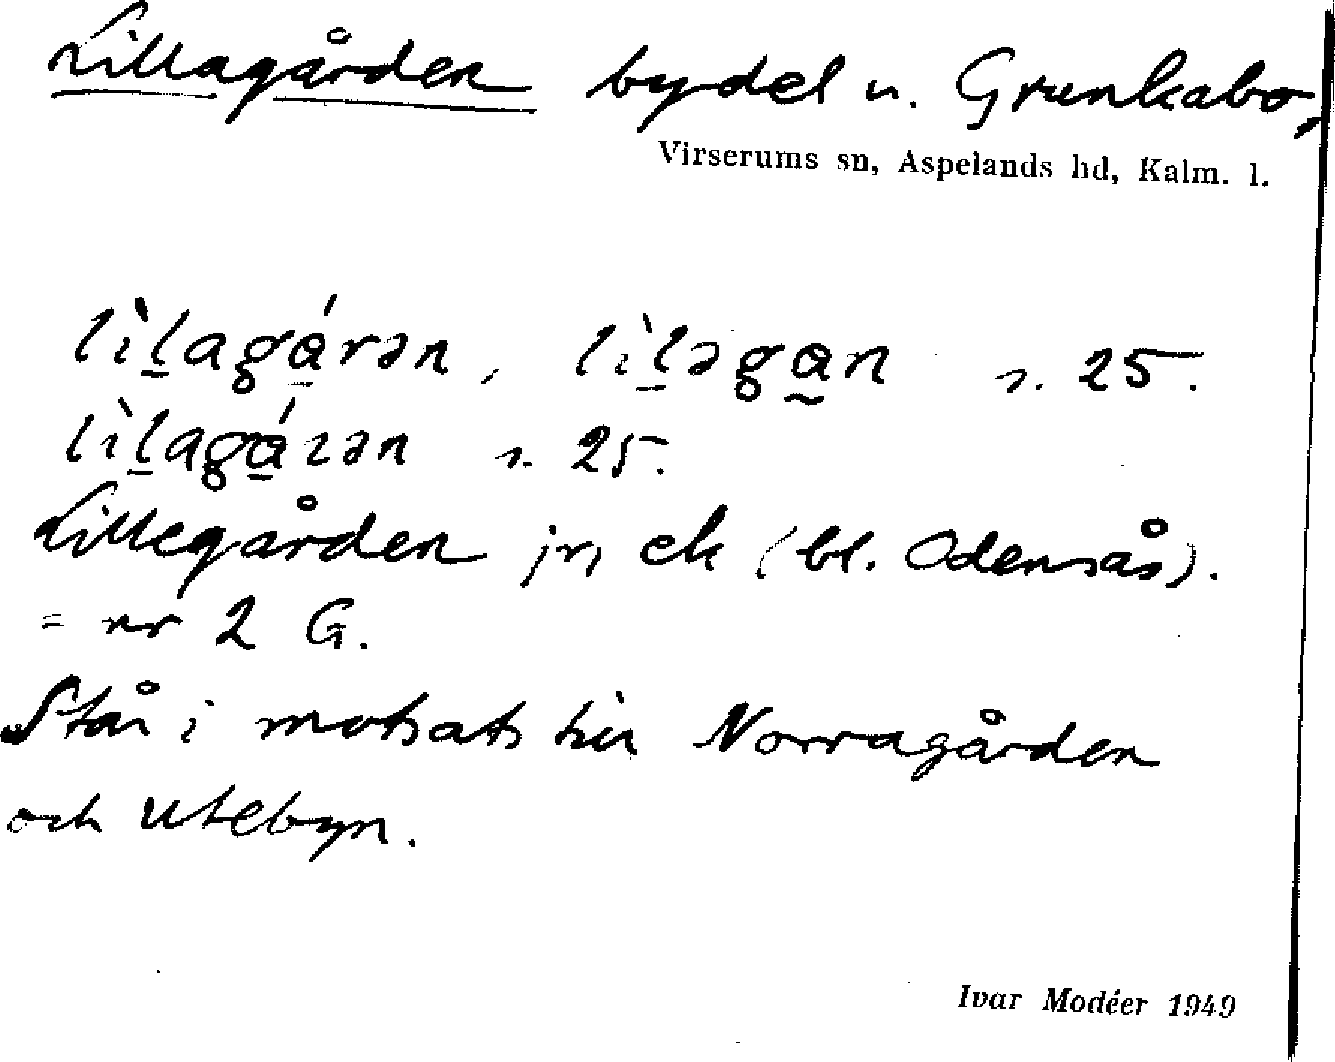 Lillagården bydel u. Grunkabo,
Virserums sn, Aspelands hd, Kalm. l.
lìlagárən, lìləgan s. 25.
lìlagárən s. 25.
Lillegården jr, ek (bl. Odensås).
= nr 2 G.
Står i motsats till Norragården
och Utebyn.
Ivar Modéer 1949